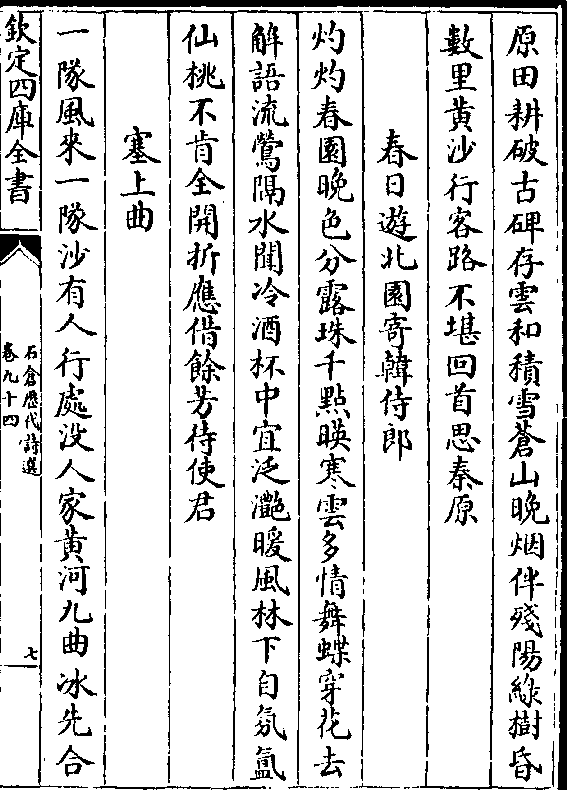 原田耕破古碑存雲和積雪蒼山晚烟伴殘陽綠樹昏
數里黃沙行客路不堪回首思秦原
春日遊北園寄韓侍郎
灼灼春園晚色分露珠千點映寒雲多情舞蝶穿花去
解語流鶯隔水聞冷酒杯中宜泛灧暖風林下自氛氳
仙桃不肯全開折應借餘芳待使君
塞上曲
一隊風來一隊沙有人行處没人家黃河九曲冰先合
欽定四庫全書
石倉歷代詩選
卷九十四
七